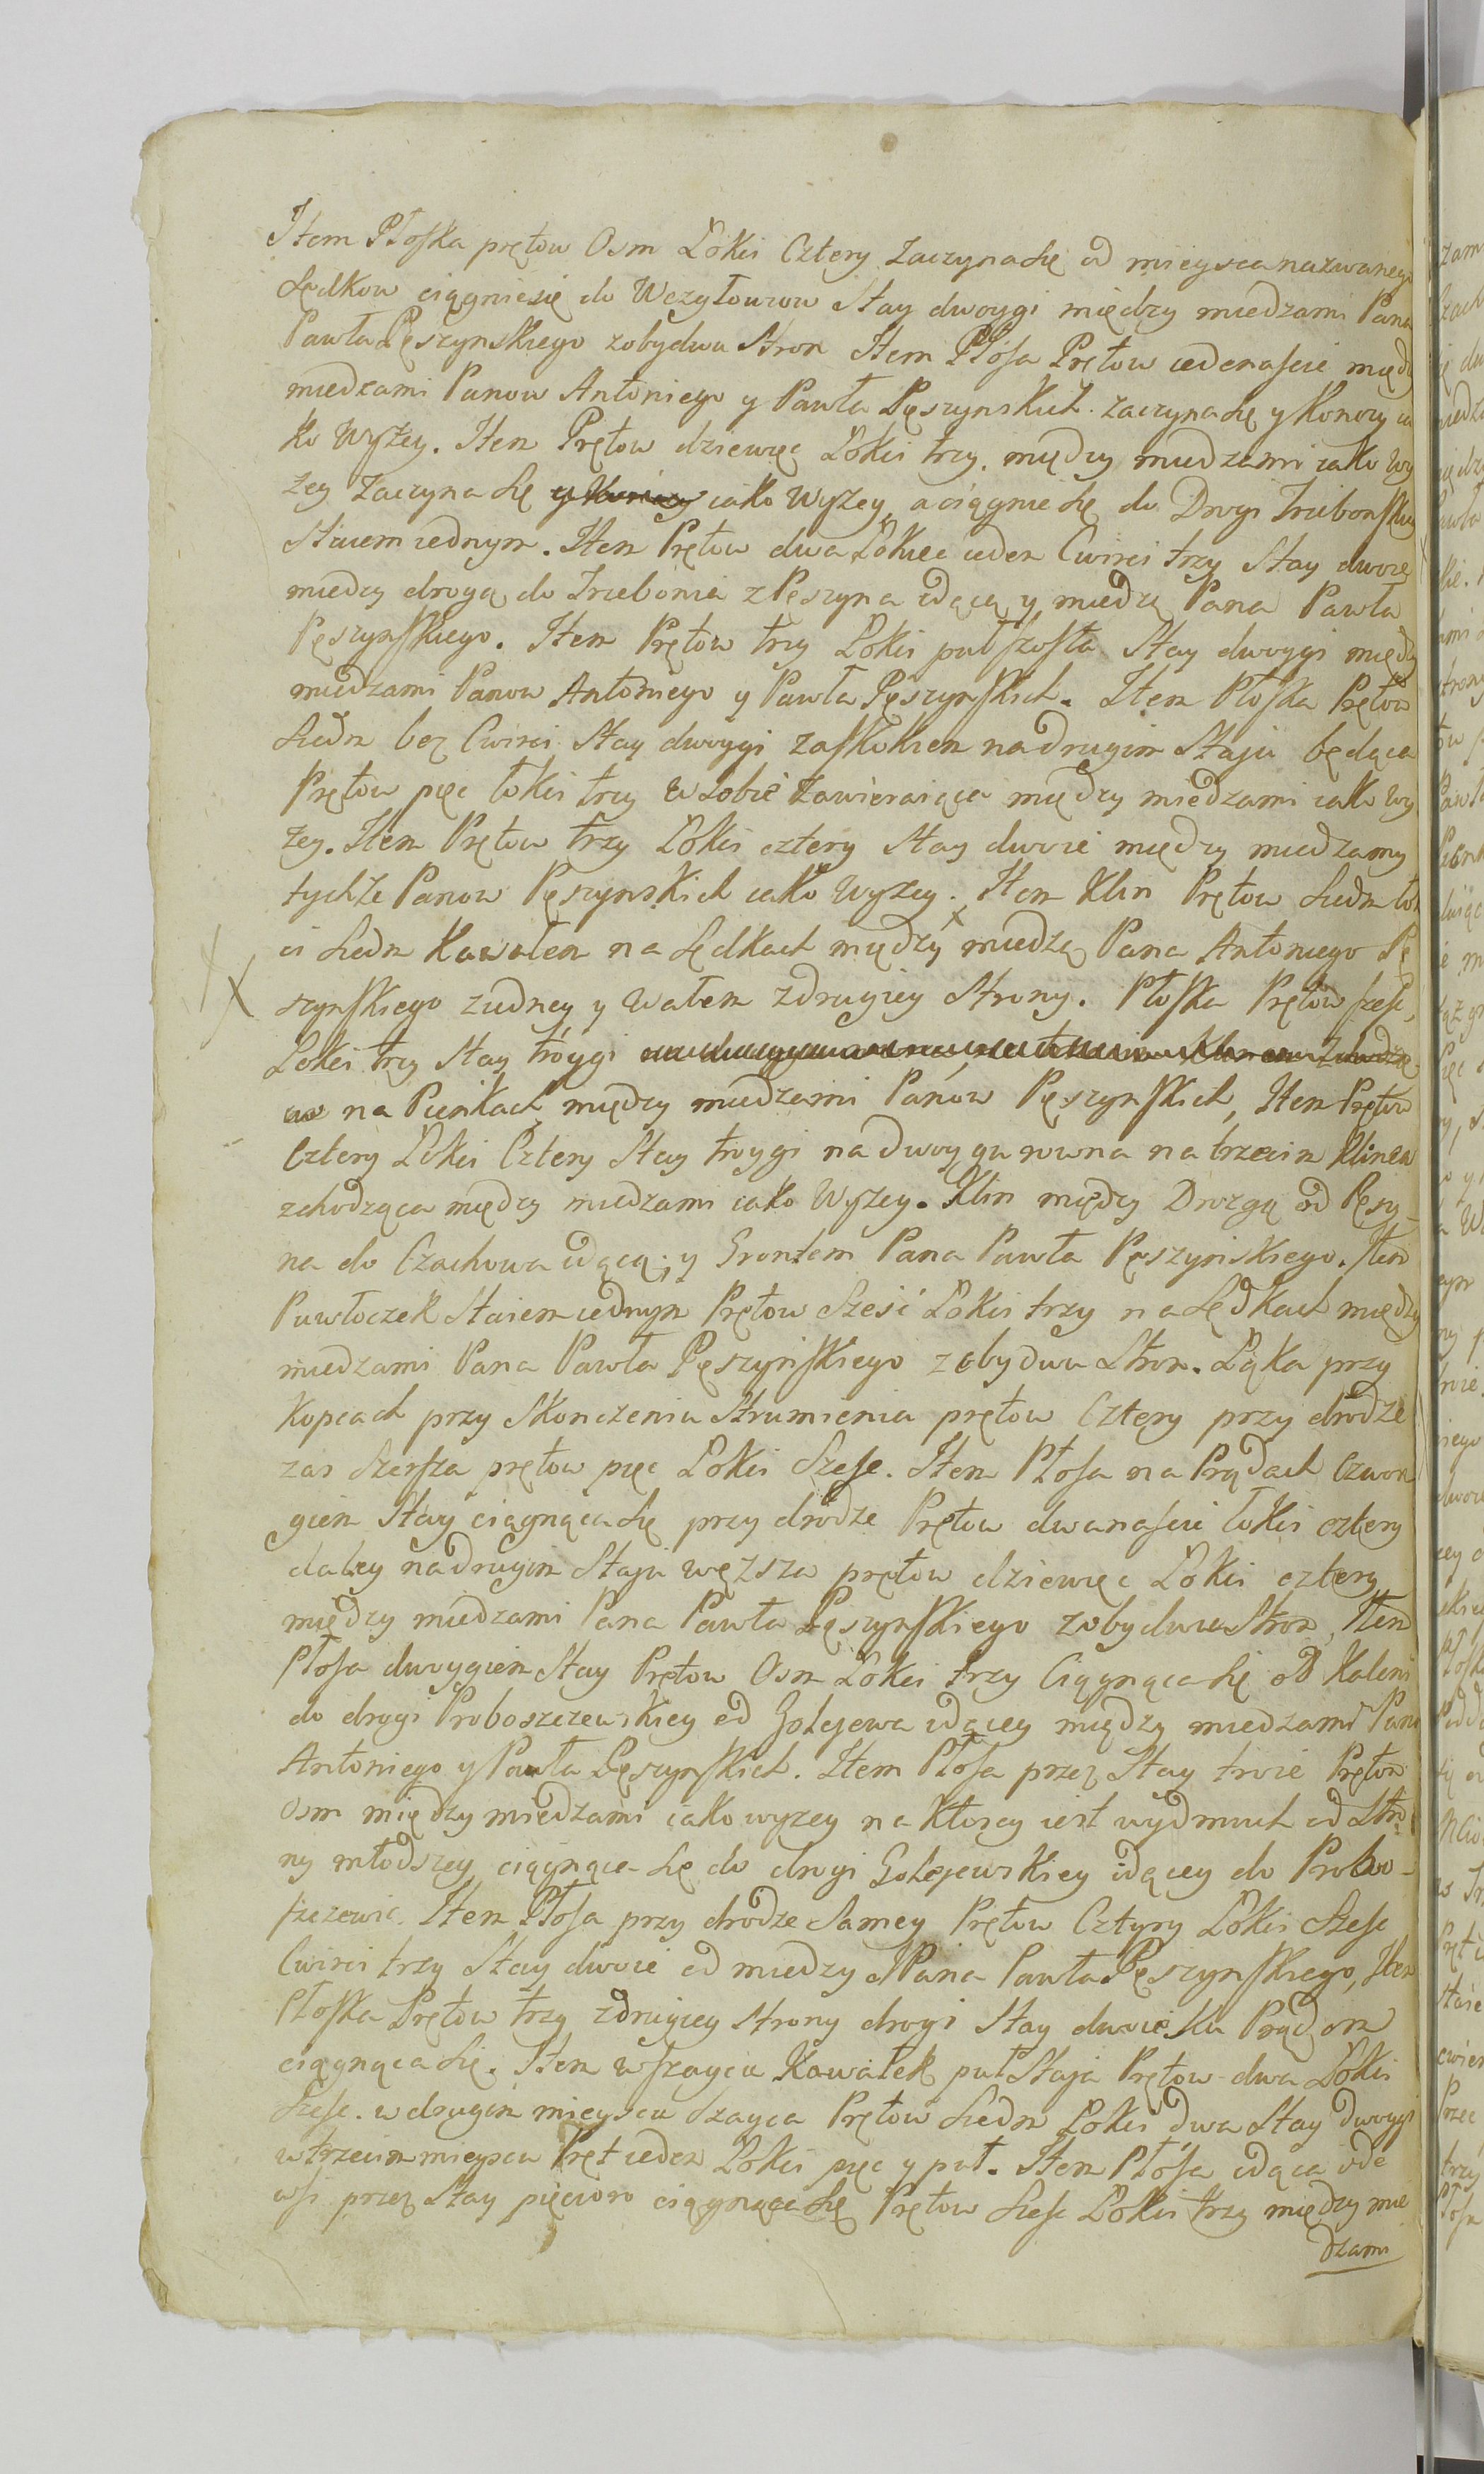 Item Płoska prętow Osm Łokci Cztery Zaczyna się od mieysca nazwanego
Sędkow ciągnie się do Wczyłowow Stay dwoygi między miedzami Pana
Pawła Pęszynskiego z obydwu Stron Item Płosa Prętow iedenascie międz
miedzami Panow Antoniego y Pawła Pęszynskich zaczyna się y Konczy ia
ko Wyżey. Item Prętow dziewięc Łokci trzy. między miedzami iako Wy
żey Zaczyna się y Konczy iako Wyżey, a ciągnie się do Drogi Trzebonskiey
Staiem iednym. Item Prętow dwa Łokiec ieden Cwierci trzy Stay dwoie
miedzy drogą do Trzebonia z Pęszyna idącą y miedzą Pana Pawła
Pęszynskiego. Item Prętow trzy Łokci puł szosta Stay dwoygi między
miedzami Panow Antoniego y Pawła Pęszynskich. Item Płoska Prętow
Siedm bez Cwierci Stay dwoygi za skokiem na drugim Staju będąca
Prętow pięc łokci trzy w sobie zawieraiąca między miedzami iako wy
żey. Item Prętow trzy Łokci cztery Stay dwoie między miedzamy
tychże Panow Pęszynskich iako Wyżey. Item Klin Prętow Siedm łok
ci Siedm Kawałem na Sędkach między x miedzą Pana Antoniego Pę
X szynskiego z iedney y Wałem z drugiey Strony. Płoska Prętow szesc,
Łokci trzy Stay troygi
na Pienkach między miedzami Panow Pęszynskich, Item Prętow
Cztery Łokci Cztery Stay troygi na dwoygu rowna na trzecim Klinem
zchodząca między miedzami iako Wyżey. Klin między Drogą od Pęszy-
na do Czachowa idącą; y Grontem Pana Pawła Pęszynskiego. Item
Pawłoczek Staiem iednym Prętow Sześć Łokci trzy na Sędkach między
miedzami Pana Pawła Pęszynskiego z obydwu Stron. Łąka przy
Kopcach przy Skonczeniu Strumienia prętow Cztery przy drodze
zas Szersza prętow pięc Łokci Szesc. Item Płosa na Prądach Czwor
giem Stay ciągnąca się przy drodze Prętow dwanascie łokci cztery
daley na drugim Staju węższa prętow dziewięc Łokci cztery
między miedzami Pana Pawła Pęszynskiego z obydwu Stron, Item
Płosa dwoygiem Stay Prętow Osm Łokci trzy Ciągnąca się od Kaleni
do drogi Proboszczewskiey od Golejewa idącey między miedzami Pana
Antoniego y Pawła Pęszynskich. Item Płosa przez Stay troie Prętow
Osm między miedzami iako wyżey na Ktorey iest wydmuch od Stro
ny młodszey ciągnąca się do drogi Golejewskiey idącey do Probo-
szczewic. Item Płosa przy drodze Samey Prętow Cztyry Łokci Szesc
Cwierci trzy Stay dwoie od miedzy Pana Pawła Pęszynskiego, Item
Płoska Prętow trzy z drugiey strony drogi Stay dwoie Ku Prądom
ciągnąca się. Item w szaycu Kawałek puł Staja Prętow dwa Łokci
Szesc. w drugim mieyscu Szayca Prętow Siedm Łokci dwa Stay dwoygi
w trzecim mieyscu Pręt ieden Łokci pięc y puł. Item Płosa idąca ode
wsi przez Stay pięcioro ciągnąca się Prętow Szesc Łokci trzy między mie
dzami